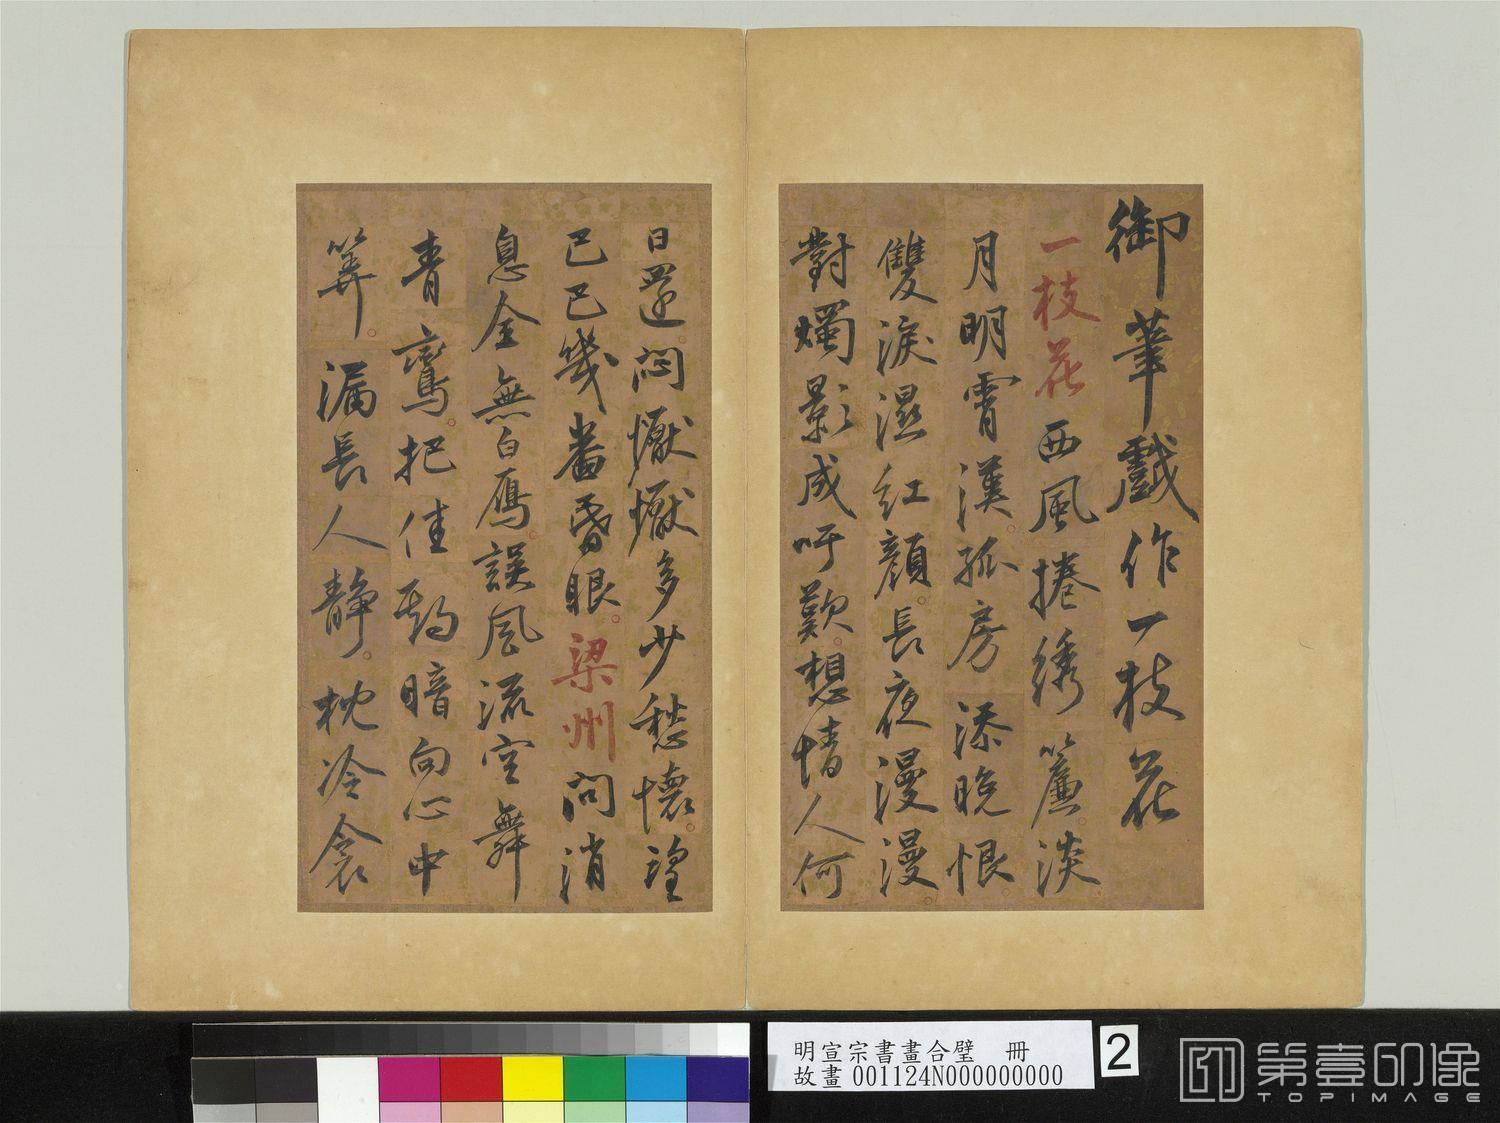 御筆戲作一枝花
一枝花西風捲綉簾淡
月明霄漢孤房添晚恨
雙淚濕紅顏長夜漫漫
對燭影成吁歎想情人何
日還悶懨懨多少愁懷
巴巴幾番昏眼梁州問消
息全無白鴈誤風流空舞
青鸞把佳期暗向心中
筭漏長人靜枕冷衾
明宣宗書畫合璧 冊
故畫001124N000000000
2
第壹印像
TOPIMAGE